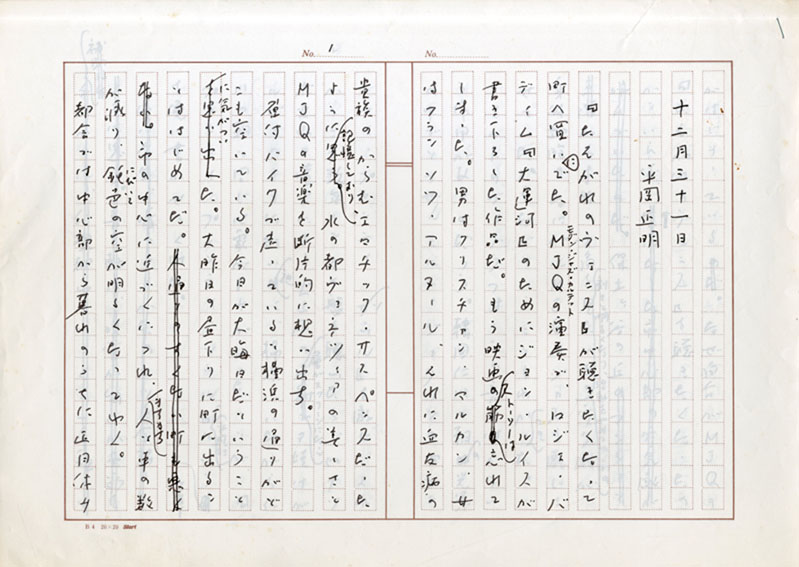 No. 1
No.
十二月三十一日
平岡正明
「たそがれのヴェニス」が聴きたくなって
町へ買いでた。MJQの演奏で、ロジェ・バ
モダン・ジャズ・カルテット
ディム「大運河」のためにジョン・ルイスが
書き下ろした作品だ。もう映画の筋は忘れて
ストーリーは
しまった。男はクリスチャン・マルカン、女
はフランソワズ・アルヌール、それに血友病の
貴族のからむエロチック・サスペンスだった
ように
記憶しており、
水の都ヴェネツィアの美しさと
MJQの音楽を断片的に想い出す。
原付バイクで走っている横浜の通りがど
こも空いている。今日が大晦日だということ
に気がついた。
大昨日の昼下りに町に出るこ
とははじめてだ。
都の中心に近づくにつれ、人と車の数
が減り、鈍色の空が明るくなってゆく。
にびいろ
都会では中心部から暮れのうちに正月休み
B4 20×20